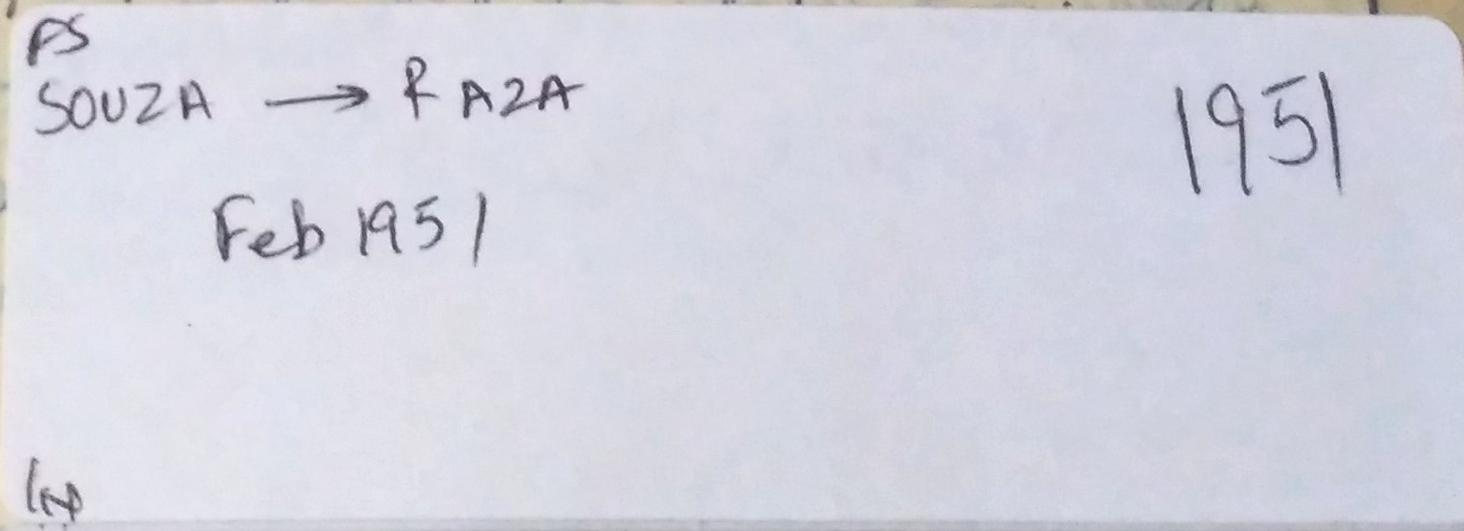 FS
SOUZA → RAZA
1951
Feb 1951